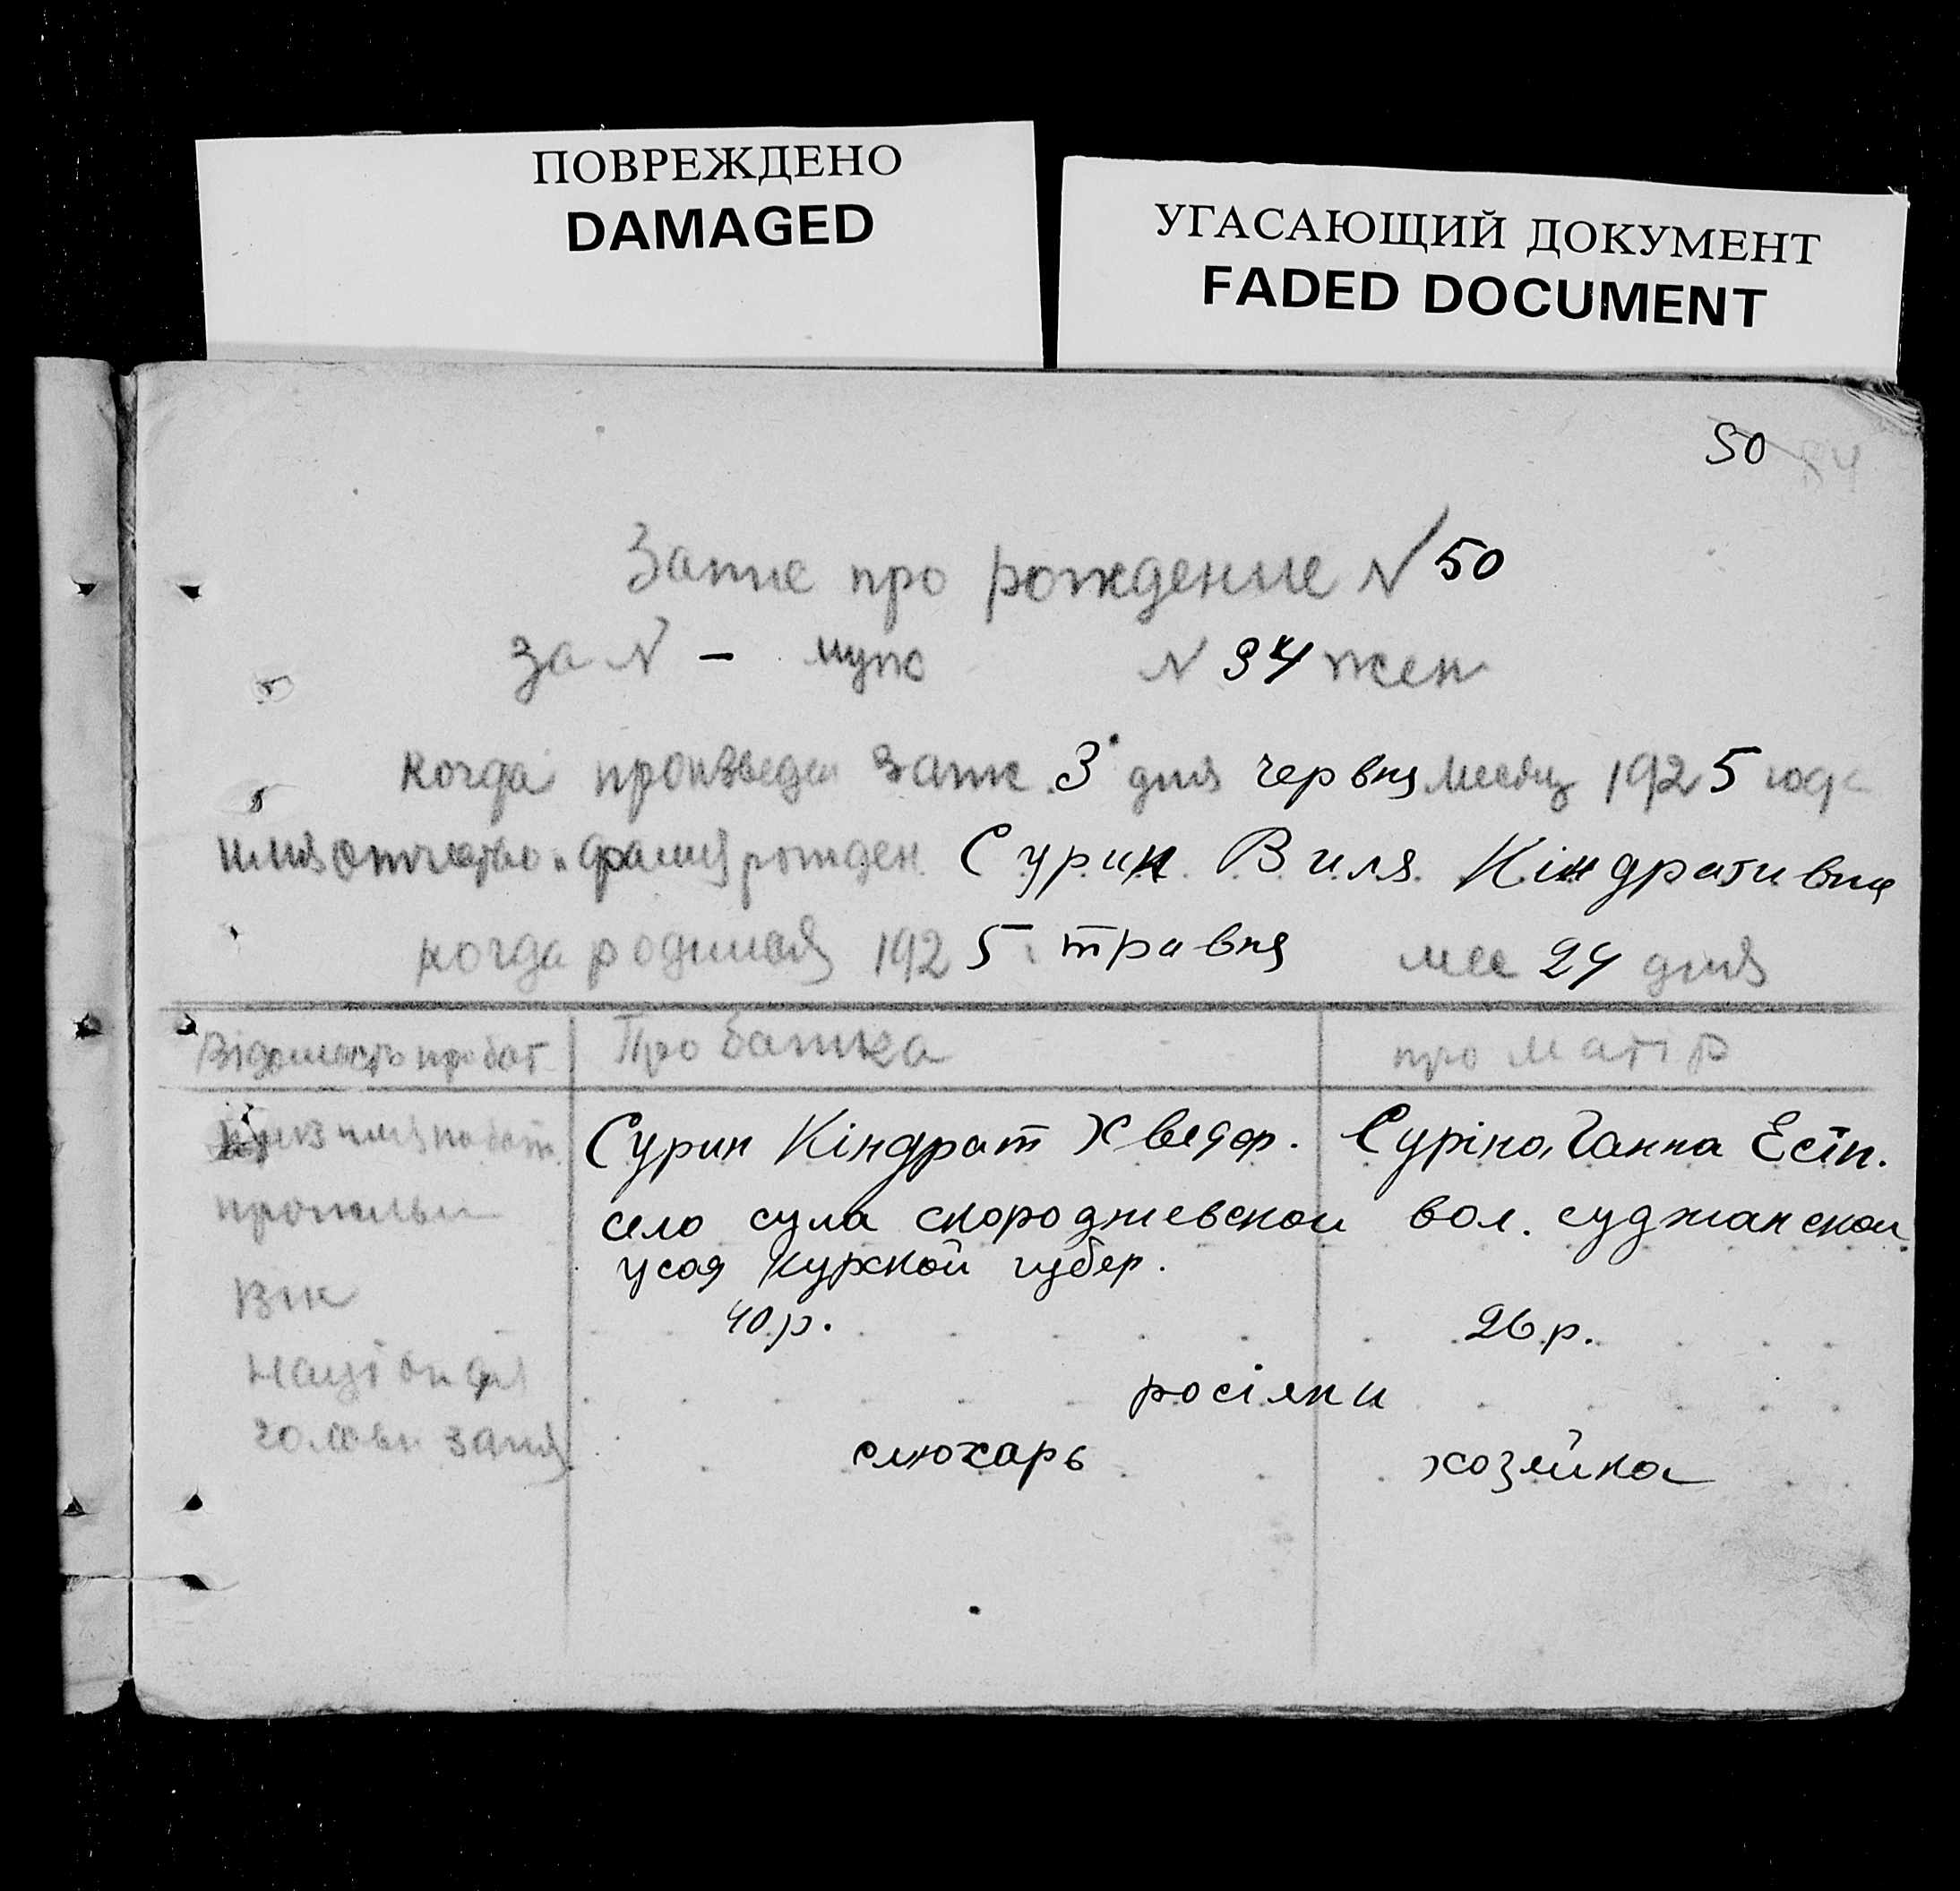 ПОВРЕЖДЕНО
DAMAGED
УГАСАЮЩИЙ ДОКУМЕНТ
FADED DOCUMENT
50 84
Запис про рождение N 50
за N – муж N 34 жен
когда произведен запис 3 дня червня месяц 1925 года
имя отчество и фамил рожден. Сурин Виля Кіндративна
когда родилась 1925 травня мес 24 дня
Відомость про бат Про батька про матір
призв имя по бат. Сурин Кіндрат Хведор. Суріна Ганна Есіп.
село сула скороднževской вол. суджанской
уезд Курской губер.
Вік 40 р. 26 р.
Націонал росіяни
головн занят слюсарь хозяйка